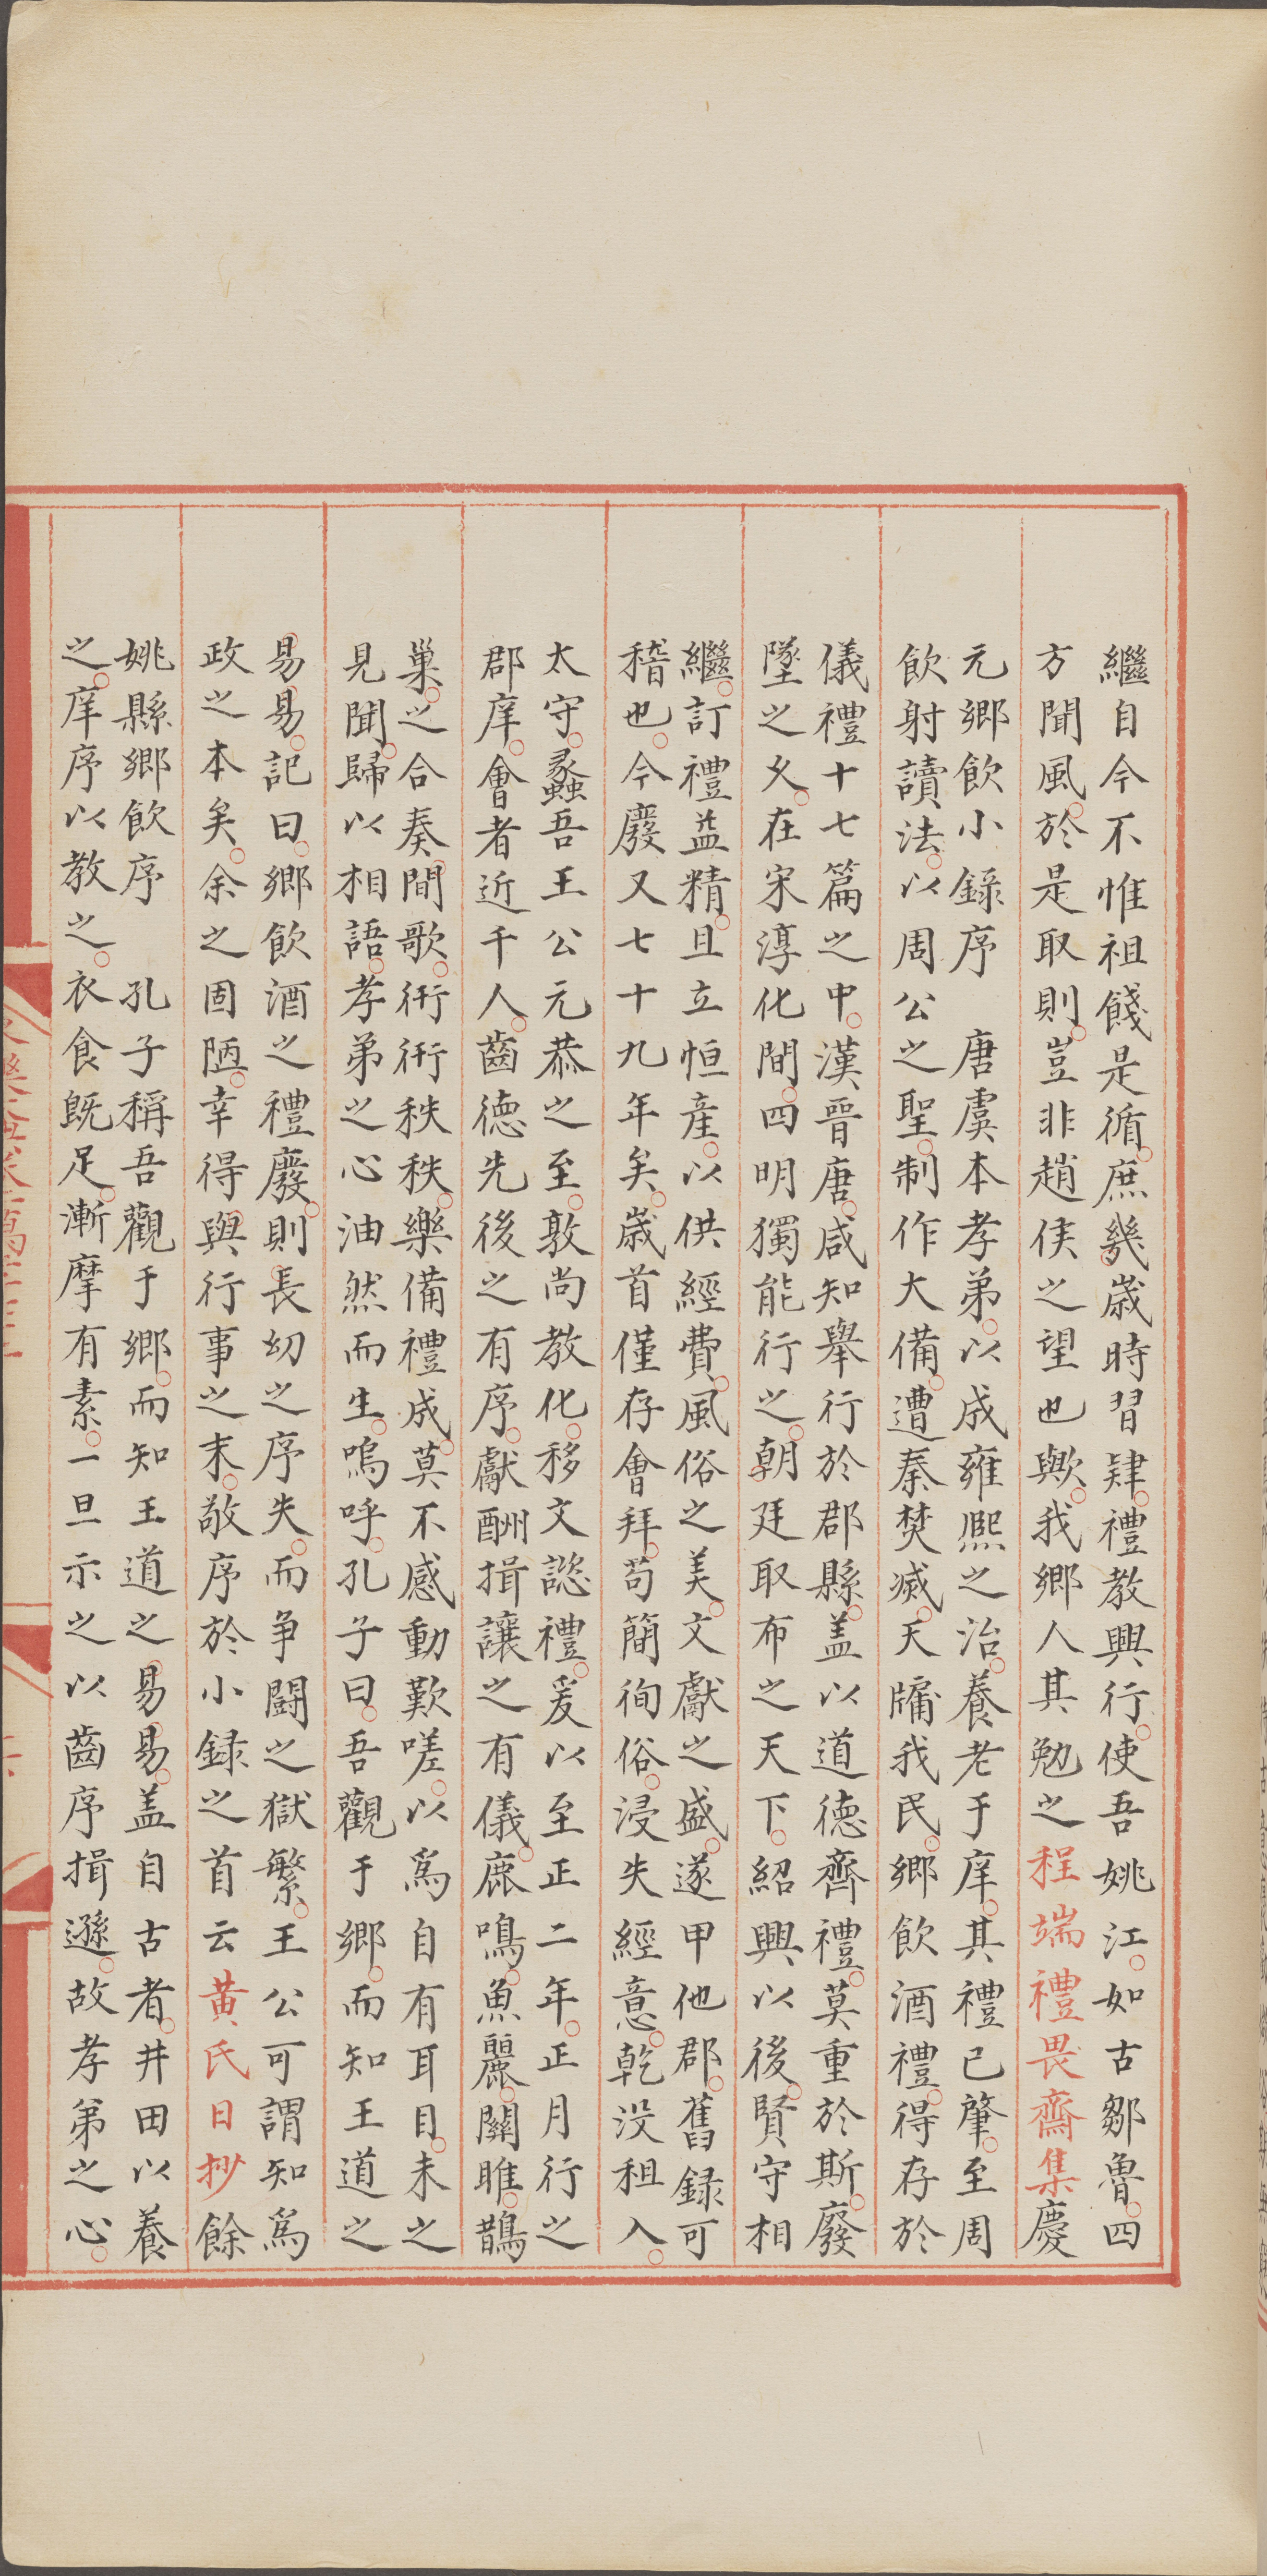 繼自今不惟祖餞是循庶幾歲時習肄禮教興行使吾姚江如古鄒魯四
方聞風於是取則豈非趙侯之望也歟我鄉人其勉之程端禮畏齋集慶
元鄉飲小錄序 唐虞本孝弟以成雍熙之治養老于庠其禮已肇至周
飲射讀法以周公之聖制作大備遭秦焚滅天牗我民鄉飲酒禮得存於
儀禮十七篇之中漢晉唐咸知舉行於郡縣盖以道德齊禮莫重於斯廢
墜之久在宋淳化間四明獨能行之朝廷取布之天下紹興以後賢守相
繼訂禮益精且立恒產以供經費風俗之美文獻之盛遂甲他郡舊録可
稽也今廢又七十九年矣歲首僅存會拜苟簡徇俗浸失經意乾没租入
太守蟸吾王公元恭之至敦尚教化移文諗禮爰以至正二年正月行之
郡庠會者近千人齒德先後之有序獻酬揖讓之有儀鹿鳴魚麗關雎鵲
巢之合奏間歌衎衎秩秩樂備禮成莫不感動歎嗟以爲自有耳目未之
見聞歸以相語孝弟之心油然而生嗚呼孔子曰吾觀于鄉而知王道之
易易記曰鄉飲酒之禮廢則長幼之序失而争鬪之獄繁王公可謂知爲
政之本矣余之固陋幸得與行事之末敬序於小録之首云黄氏日抄餘
姚縣鄉飲序 孔子稱吾觀于鄉而知王道之易易盖自古者井田以養
之庠序以教之衣食既足漸摩有素一旦示之以齒序揖遜故孝弟之心